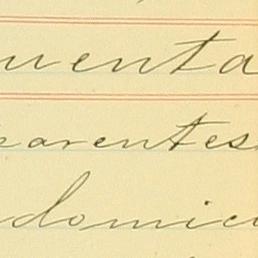 uenta
parentes
domici